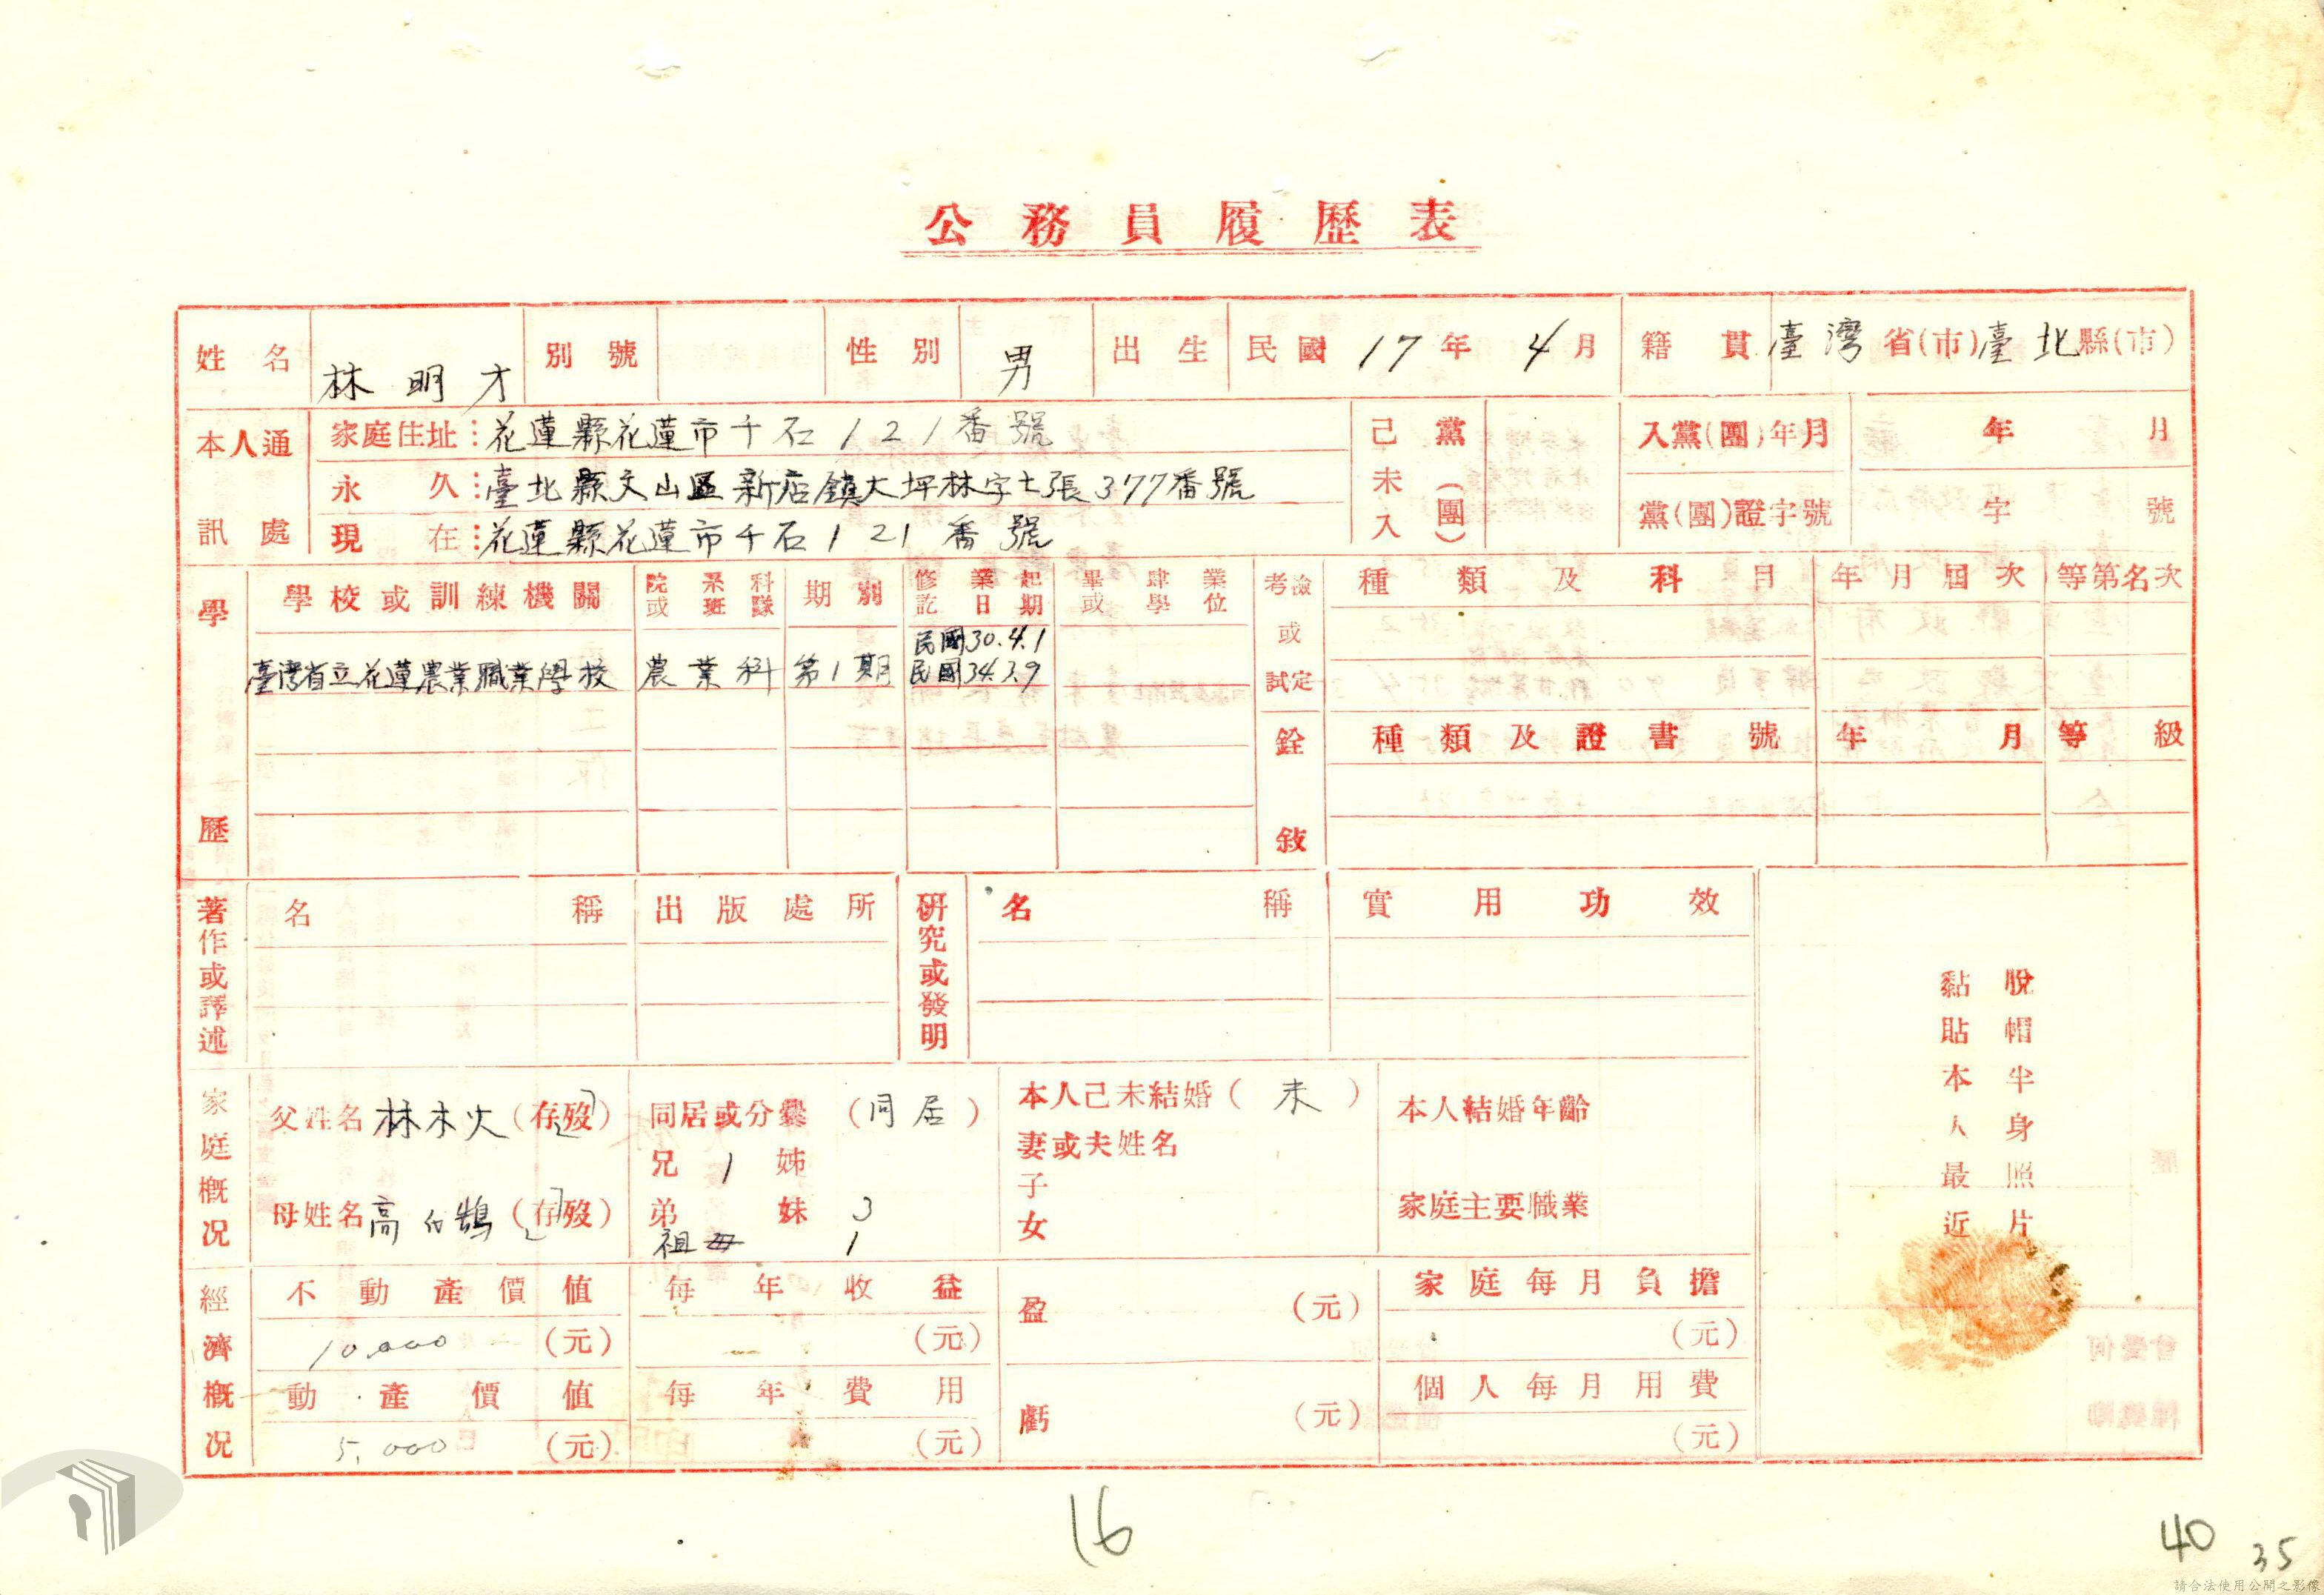 公務員履歷表
姓名 林明才 別號 性別 男 出生 民國 17年 4月 籍貫 臺灣省(市)臺北縣(市)
本人通訊處
家庭住址：花蓮縣花蓮市千石121番號
永久：臺北縣文山區新店鎮大坪林字七張377番號
現在：花蓮縣花蓮市千石121番號
己未入黨(團)
入黨(團)年月 年 月
黨(團)證字號 字 號
學歷
學校或訓練機關 院系科或班隊 期別 修業起訖日期 畢肄業或學位
臺灣省立花蓮農業職業學校 農業科 第1期 民國30.4.1 民國34.3.9
考檢或試定 種類及科目 年月屆次 等第名次
銓敘 種類及證書號 年月 等級
著作或譯述 名稱 出版處所
研究或發明 名稱 實用功效
脫帽半身照片
黏貼本人最近
家庭概況
父姓名 林木火 (存歿)
母姓名 高 鵠 (存歿)
同居或分爨 (同居)
兄 1 姊
弟 妹 3
祖母 1
本人己未結婚(未)
妻或夫姓名
子
女
本人結婚年齡
家庭主要職業
經濟概況
不動產價值 10,000 (元)
每年收益 — (元)
動產價值 5,000 (元)
每年費用 (元)
盈 (元)
虧 (元)
家庭每月負擔 (元)
個人每月用費 (元)
16
40
35
請合法使用公開之影像